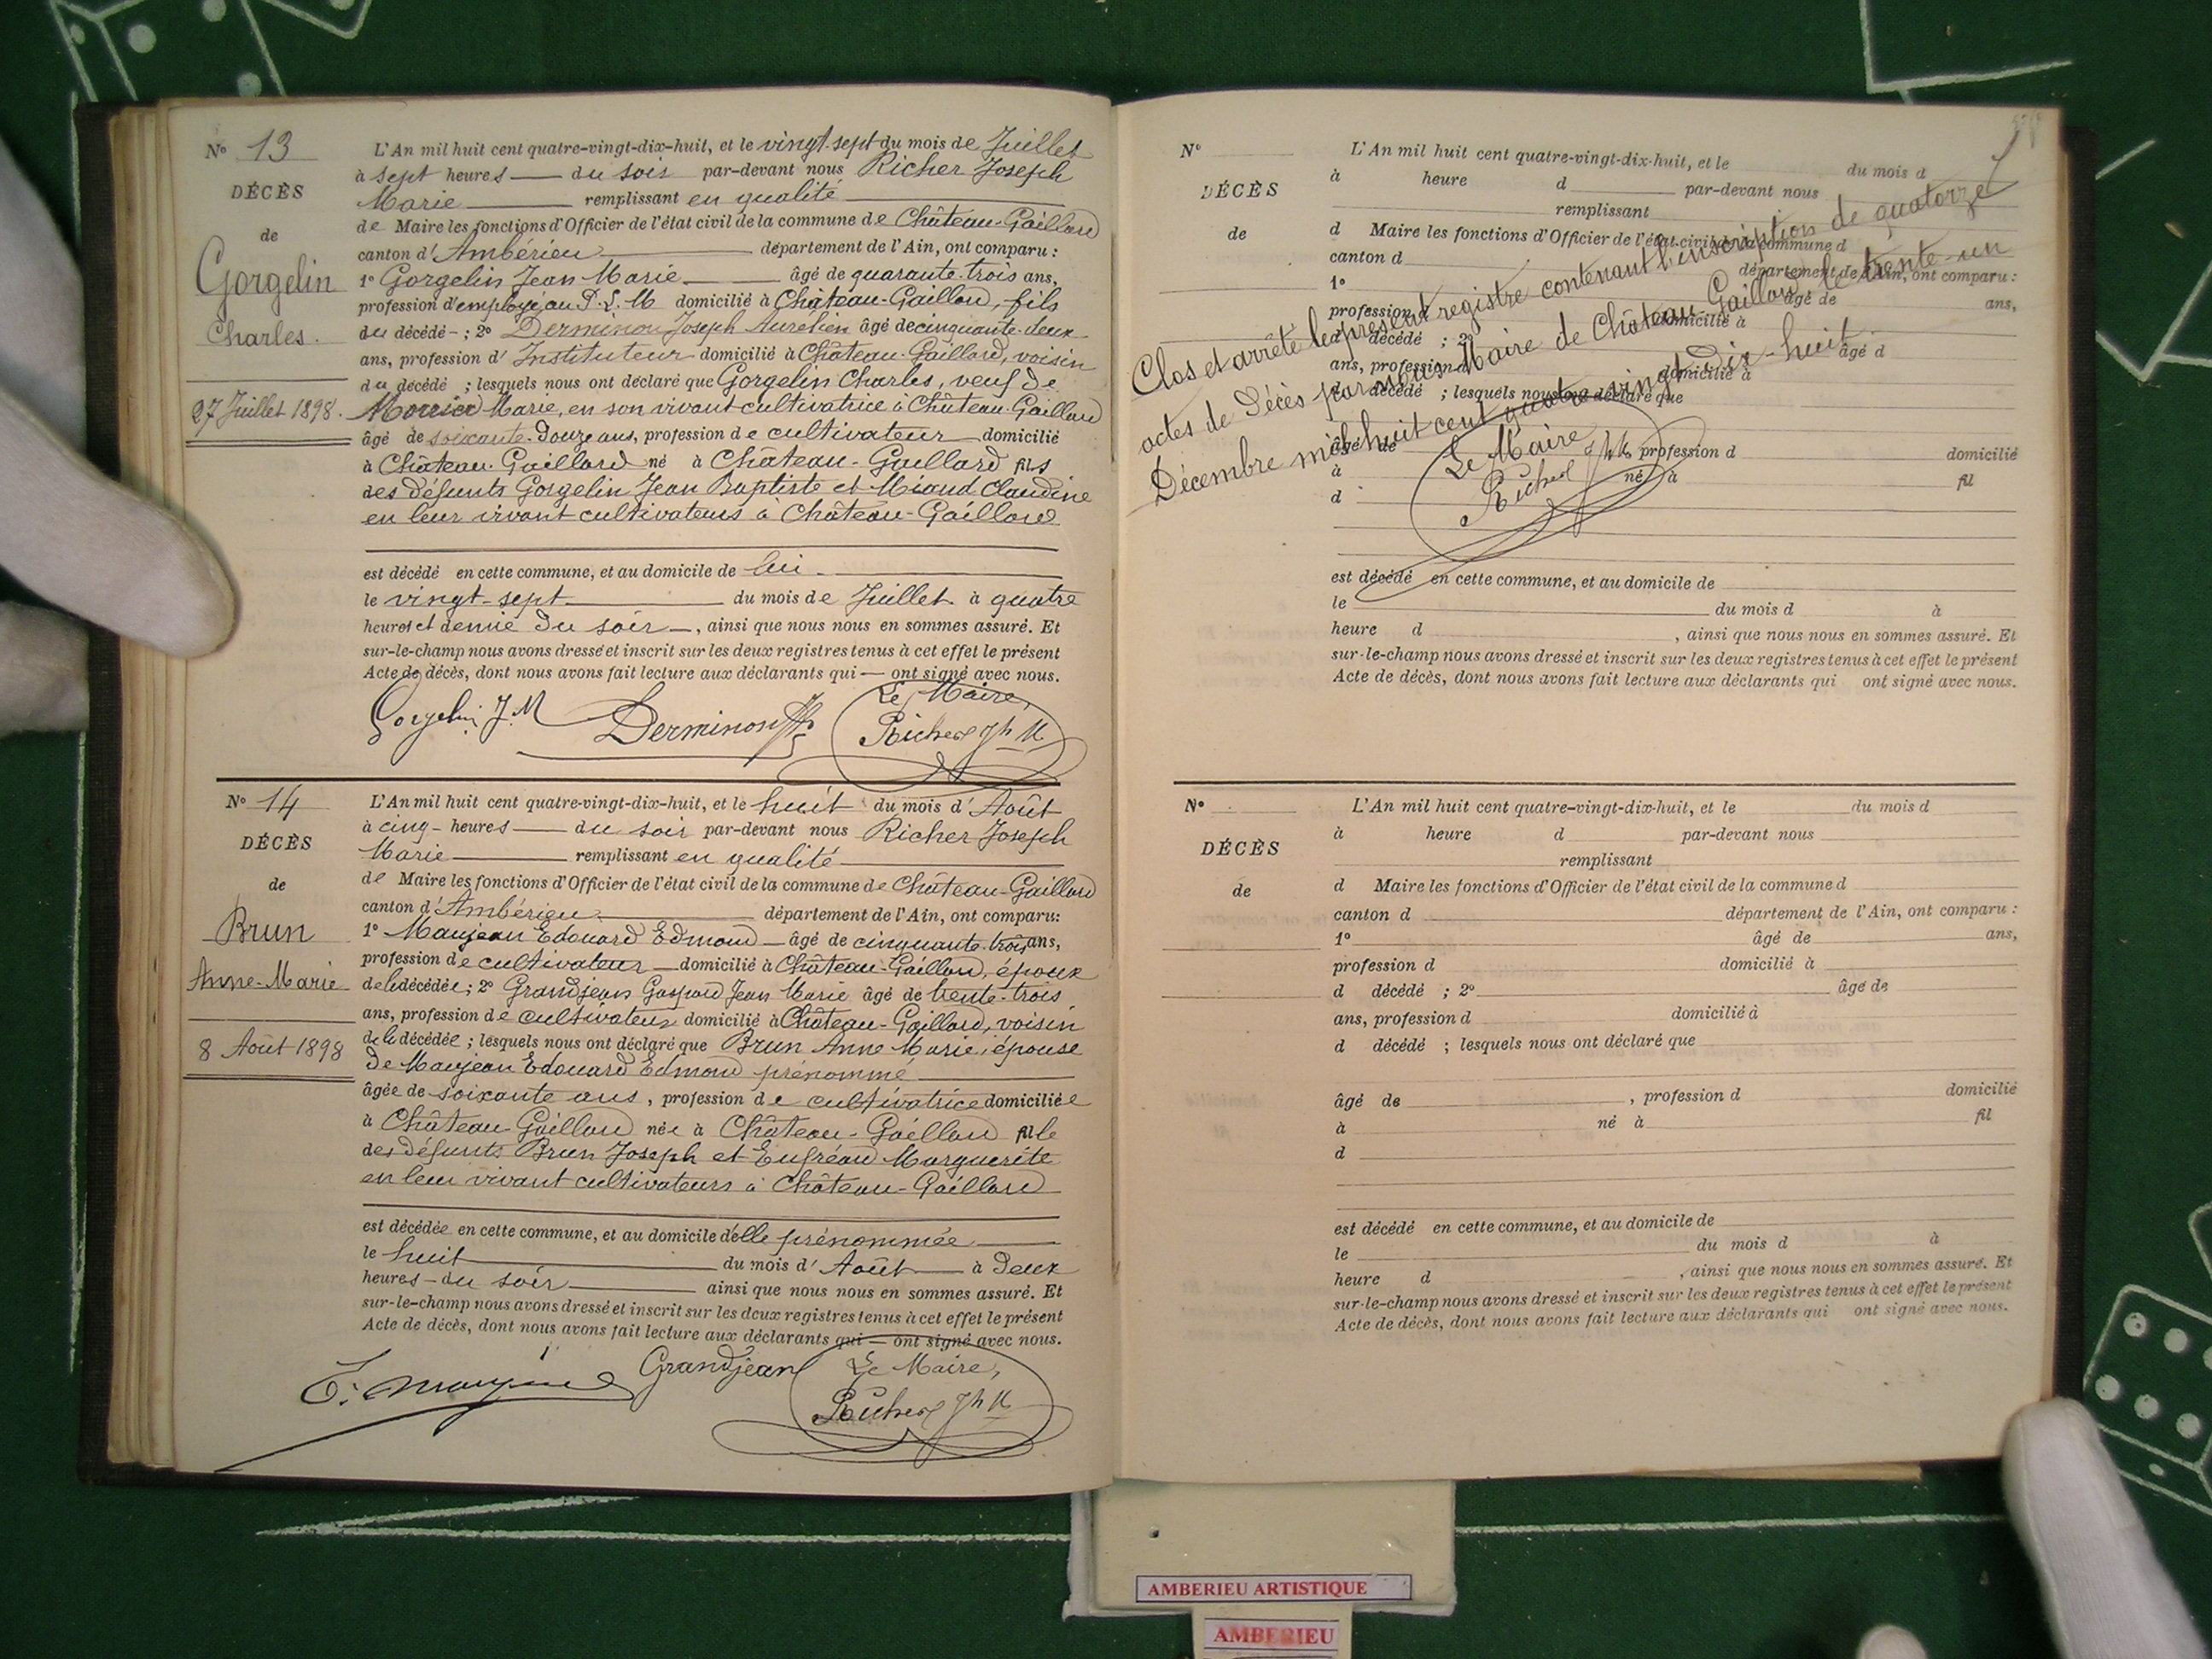 N° 13
DÉCÈS
de
Gorgelin
Charles.
27 Juillet 1898.
L'An mil huit cent quatre-vingt-dix-huit, et le vingt-sept du mois de Juillet
à sept heures du soir par-devant nous Richer Joseph
Marie remplissant en qualité
de Maire les fonctions d'Officier de l'état civil de la commune de Château-Gaillard
canton d'Ambérieu département de l'Ain, ont comparu :
1° Gorgelin Jean Marie âgé de quarante-trois ans,
profession d'employé au P. L. M domicilié à Château-Gaillard, fils
du décédé ; 2° Derminon Joseph Aurélien âgé de cinquante-deux
ans, profession d'Instituteur domicilié à Château-Gaillard, voisin
du décédé ; lesquels nous ont déclaré que Gorgelin Charles, veuf de
Marie, en son vivant cultivatrice à Château-Gaillard
âgé de soixante-douze ans, profession de cultivateur domicilié
à Château-Gaillard né à Château-Gaillard fils
des défunts Gorgelin Jean Baptiste et Claudine
en leur vivant cultivateurs à Château-Gaillard
est décédé en cette commune, et au domicile de lui
le vingt-sept du mois de Juillet à quatre
heures et demie du soir, ainsi que nous nous en sommes assuré. Et
sur-le-champ nous avons dressé et inscrit sur les deux registres tenus à cet effet le présent
Acte de décès, dont nous avons fait lecture aux déclarants qui — ont signé avec nous.
Gorgelin J. M Derminon Le Maire,
Richer Jh M
N° 14
DÉCÈS
de
Brun
Anne-Marie
8 Août 1898
L'An mil huit cent quatre-vingt-dix-huit, et le huit du mois d'Août
à cinq heures du soir par-devant nous Richer Joseph
Marie remplissant en qualité
de Maire les fonctions d'Officier de l'état civil de la commune de Château-Gaillard
canton d'Ambérieu département de l'Ain, ont comparu:
1° Maujean Edouard Edmond âgé de cinquante-trois ans,
profession de cultivateur domicilié à Château-Gaillard, époux
de la décédée; 2° Grandjean Gaspard Jean Marie âgé de trente-trois
ans, profession de cultivateur domicilié à Château-Gaillard, voisin
de la décédée ; lesquels nous ont déclaré que Brun Anne Marie, épouse
de Maujean Edouard Edmond prénommé
âgée de soixante ans, profession de cultivatrice domiciliée
à Château-Gaillard née à Château-Gaillard fille
des défunts Brun Joseph et Marguerite
en leur vivant cultivateurs à Château-Gaillard
est décédée en cette commune, et au domicile d'elle prénommée
le huit du mois d'Août à deux
heures du soir ainsi que nous nous en sommes assuré. Et
sur-le-champ nous avons dressé et inscrit sur les deux registres tenus à cet effet le présent
Acte de décès, dont nous avons fait lecture aux déclarants qui — ont signé avec nous.
Grandjean Le Maire,
Richer Jh M
N°
DÉCÈS
de
L'An mil huit cent quatre-vingt-dix-huit, et le du mois d
à heure d par-devant nous
remplissant
d Maire les fonctions d'Officier de l'état civil de la commune d
canton d département de l'Ain, ont comparu :
1° âgé de ans,
profession d domicilié à
d décédé ; 2° âgé d
ans, profession d domicilié à
d décédé ; lesquels nous ont déclaré que
âgé de profession d domicilié
à né à fil
d
Clos et arrêté le présent registre contenant l'inscription de quatorze
actes de Décès par nous Maire de Château-Gaillard, le trente-un
Décembre mil huit cent quatre vingt dix-huit
Le Maire
Richer Jh M
est décédé en cette commune, et au domicile de
le du mois d à
heure d , ainsi que nous nous en sommes assuré. Et
sur-le-champ nous avons dressé et inscrit sur les deux registres tenus à cet effet le présent
Acte de décès, dont nous avons fait lecture aux déclarants qui ont signé avec nous.
N°
DÉCÈS
de
L'An mil huit cent quatre-vingt-dix-huit, et le du mois d
à heure d par-devant nous
remplissant
d Maire les fonctions d'Officier de l'état civil de la commune d
canton d département de l'Ain, ont comparu :
1° âgé de ans,
profession d domicilié à
d décédé ; 2° âgé de
ans, profession d domicilié à
d décédé ; lesquels nous ont déclaré que
âgé de , profession d domicilié
à né à fil
d
est décédé en cette commune, et au domicile de
le du mois d à
heure d , ainsi que nous nous en sommes assuré. Et
sur-le-champ nous avons dressé et inscrit sur les deux registres tenus à cet effet le présent
Acte de décès, dont nous avons fait lecture aux déclarants qui ont signé avec nous.
AMBERIEU ARTISTIQUE
AMBERIEU